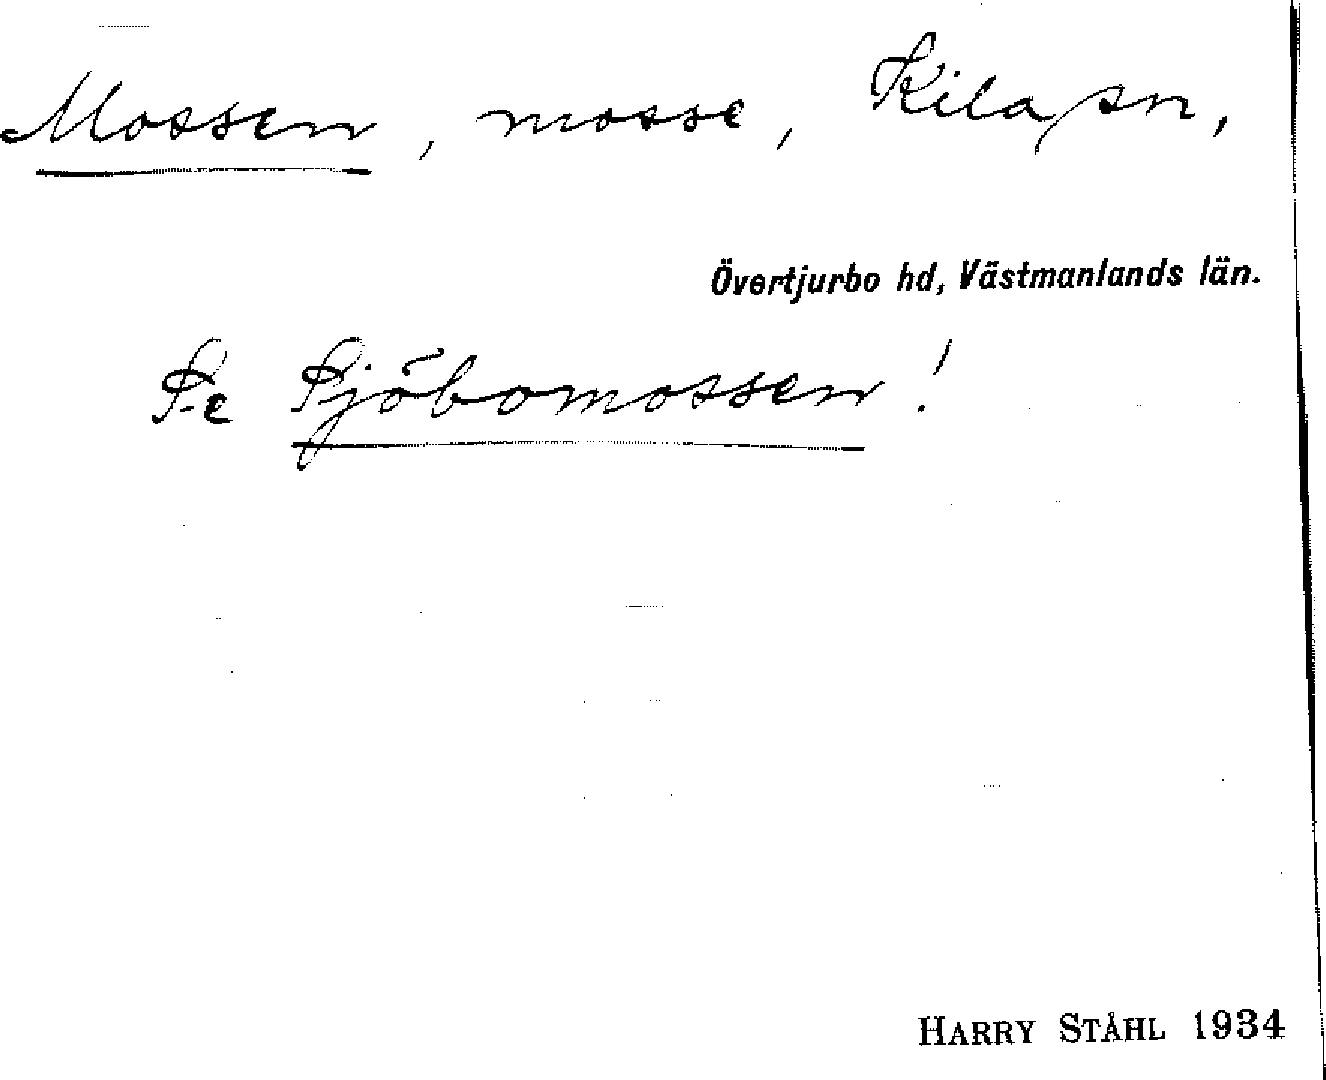 Mossen, mosse, Kila sn,
Övertjurbo hd, Västmanlands län.
Se Sjöbomossen!
HARRY STÅHL 1934